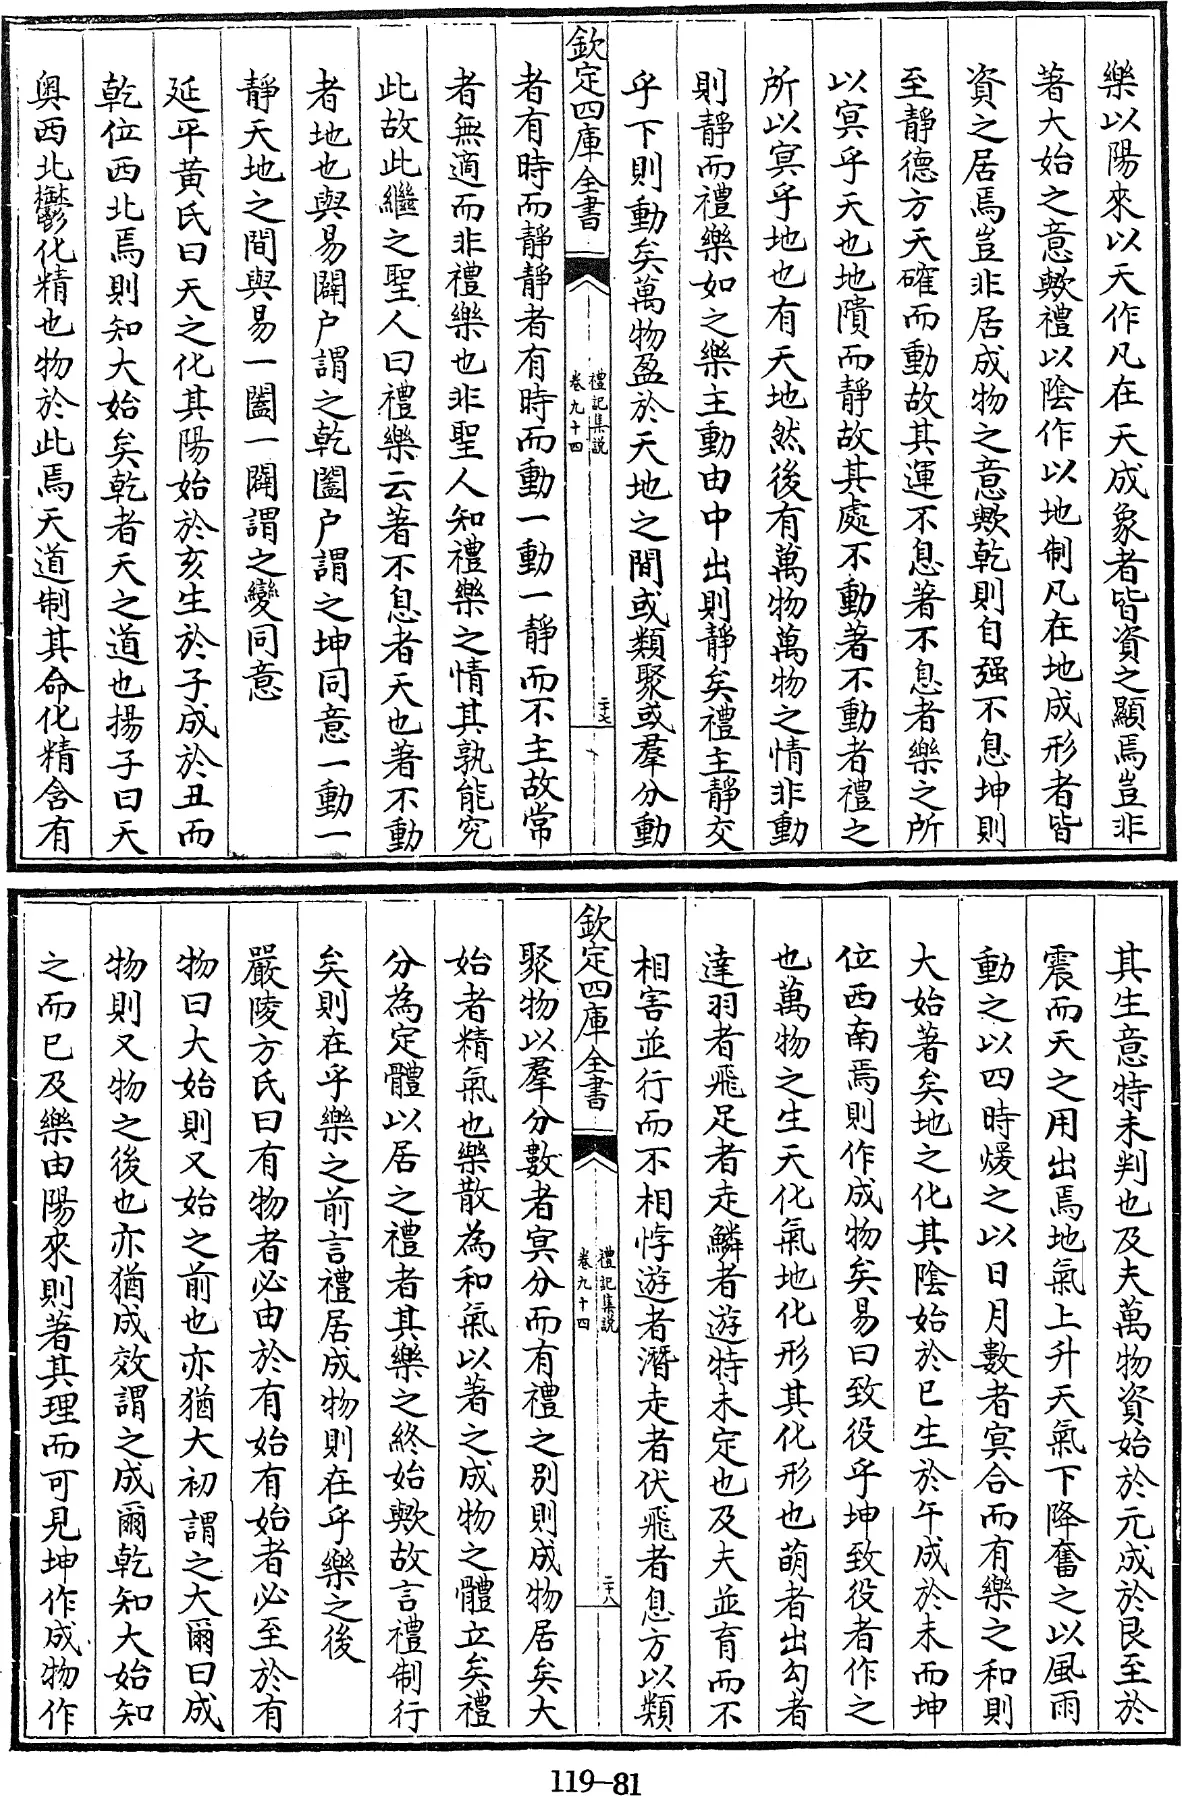 樂以陽來以天作凡在天成象者皆資之顯焉豈非
著大始之意歟禮以陰作以地制凡在地成形者皆
資之居焉豈非居成物之意歟乾則自强不息坤則
至靜德方天確而動故其運不息著不息者樂之所
以冥乎天也地隤而靜故其處不動著不動者禮之
所以冥乎地也有天地然後有萬物萬物之情非動
則靜而禮樂如之樂主動由中出則靜矣禮主靜交
乎下則動矣萬物盈於天地之間或類聚或羣分動
欽定四庫全書
禮記集説
卷九十四
二十七
者有時而靜靜者有時而動一動一靜而不主故常
者無適而非禮樂也非聖人知禮樂之情其孰能究
此故此繼之聖人曰禮樂云著不息者天也著不動
者地也與易闢户謂之乾闔户謂之坤同意一動一
靜天地之間與易一闔一闢謂之變同意
延平黄氏曰天之化其陽始於亥生於子成於丑而
乾位西北焉則知大始矣乾者天之道也揚子曰天
奥西北鬱化精也物於此焉天道制其命化精含有
其生意特未判也及夫萬物資始於元成於艮至於
震而天之用出焉地氣上升天氣下降奮之以風雨
動之以四時煖之以日月數者冥合而有樂之和則
大始著矣地之化其陰始於巳生於午成於未而坤
位西南焉則作成物矣易曰致役乎坤致役者作之
也萬物之生天化氣地化形其化形也萌者出勾者
達羽者飛足者走鱗者游特未定也及夫並育而不
相害並行而不相悖游者潛走者伏飛者息方以類
欽定四庫全書
禮記集説
卷九十四
二十八
聚物以羣分數者冥分而有禮之别則成物居矣大
始者精氣也樂散為和氣以著之成物之體立矣禮
分為定體以居之禮者其樂之終始歟故言禮制行
矣則在乎樂之前言禮居成物則在乎樂之後
嚴陵方氏曰有物者必由於有始有始者必至於有
物曰大始則又始之前也亦猶大初謂之大爾曰成
物則又物之後也亦猶成效謂之成爾乾知大始知
之而已及樂由陽來則著其理而可見坤作成物作
119-81